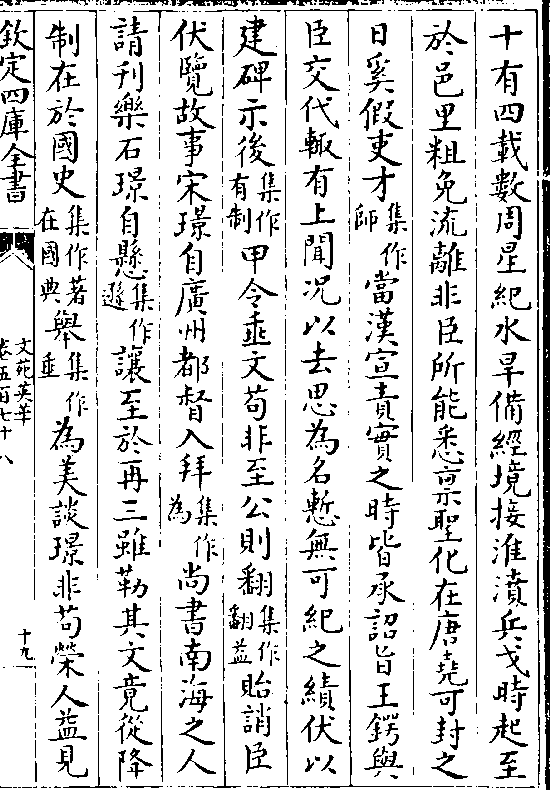 十有四載數周星紀水旱備經境接淮濆兵戈時起至
於邑里粗免流離非臣所能悉禀聖化在唐堯可封之
日奚假吏才集作師當漢宣責實之時皆承詔旨王鍔與
臣交代輙有上聞況以去思為名慙無可紀之績伏以
建碑示後集作有制甲令垂文苟非至公則翻集作翻益貽誚臣
伏覽故事宋璟自廣州都督入拜集作為尚書南海之人
請刊樂石璟自懸集作遜讓至於再三雖勒其文竟從降
制在於國史集作著在國典舉集作垂為美談璟非苟榮人益見
欽定四庫全書
文苑英華
卷五百七十八
十九